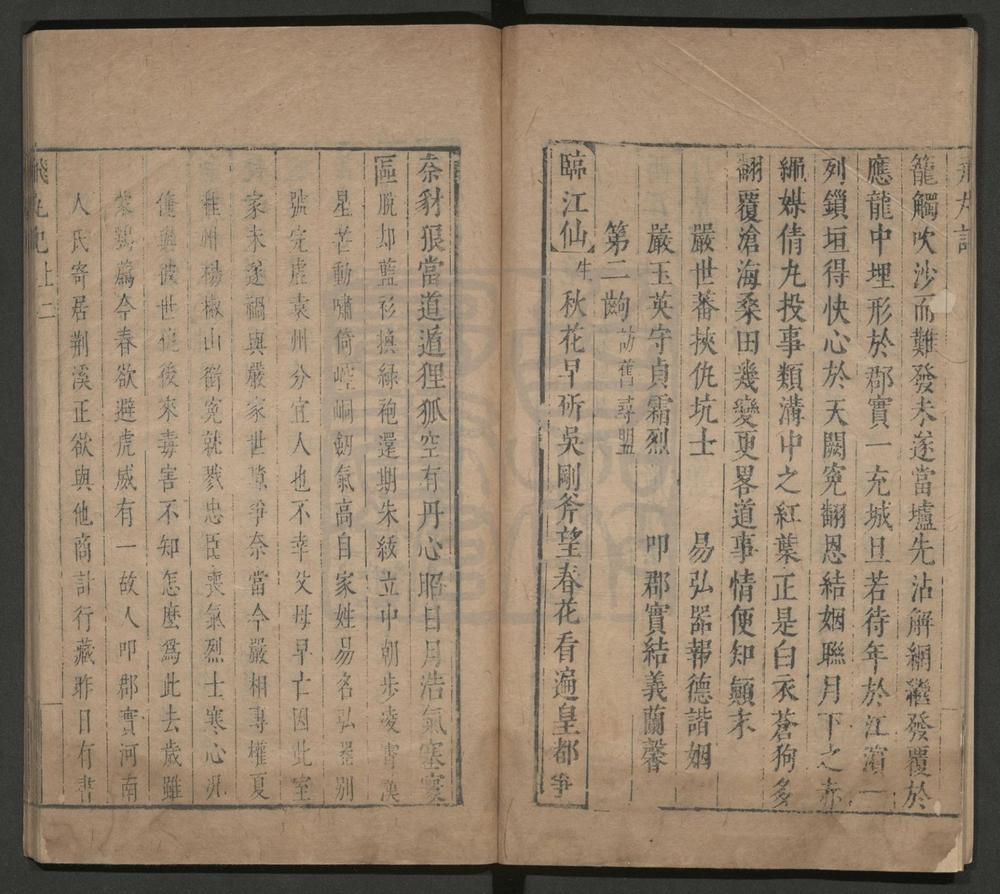 籠觸吹沙而難發未遂當壚先沾解網繼發覆於
應龍中埋形於郡實一充城旦若待年於江濵一
列鎖垣得快心於天闕寃翻恩結姻聯月下之赤
繩媒倩九投事類溝中之紅葉正是白衣蒼狗多
翻覆滄海桑田幾變更畧道事情便知顛末
嚴世蕃挾仇坑士 易弘器報德諧姻
嚴玉英守貞霜烈 叩郡實結義蘭馨
第二齣 訪舊尋盟
臨江仙 生 秋花早斫吳剛斧望春花看遍皇都爭
奈豺狼當道遁狸狐空有丹心昭日月浩氣塞寰
區 脫却藍衫換緑袍還期朱紱立中朝步凌霄漢
星芒動嘯倚崆峒劒氣高自家姓易名弘器別
號完虛袁州分宜人也不幸父母早亡因此室
家未遂禍與嚴家世嫌爭奈當今嚴相專權夏
桂州楊椒山銜寃就戮忠臣喪氣烈士寒心況
僕與彼世仇後來毒害不知怎麼爲此去歲雖
叅鶚薦今春欲避虎威有一故人叩郡實河南
人氏寄居荆溪正欲與他商計行藏昨日有書
飛丸記 上 二